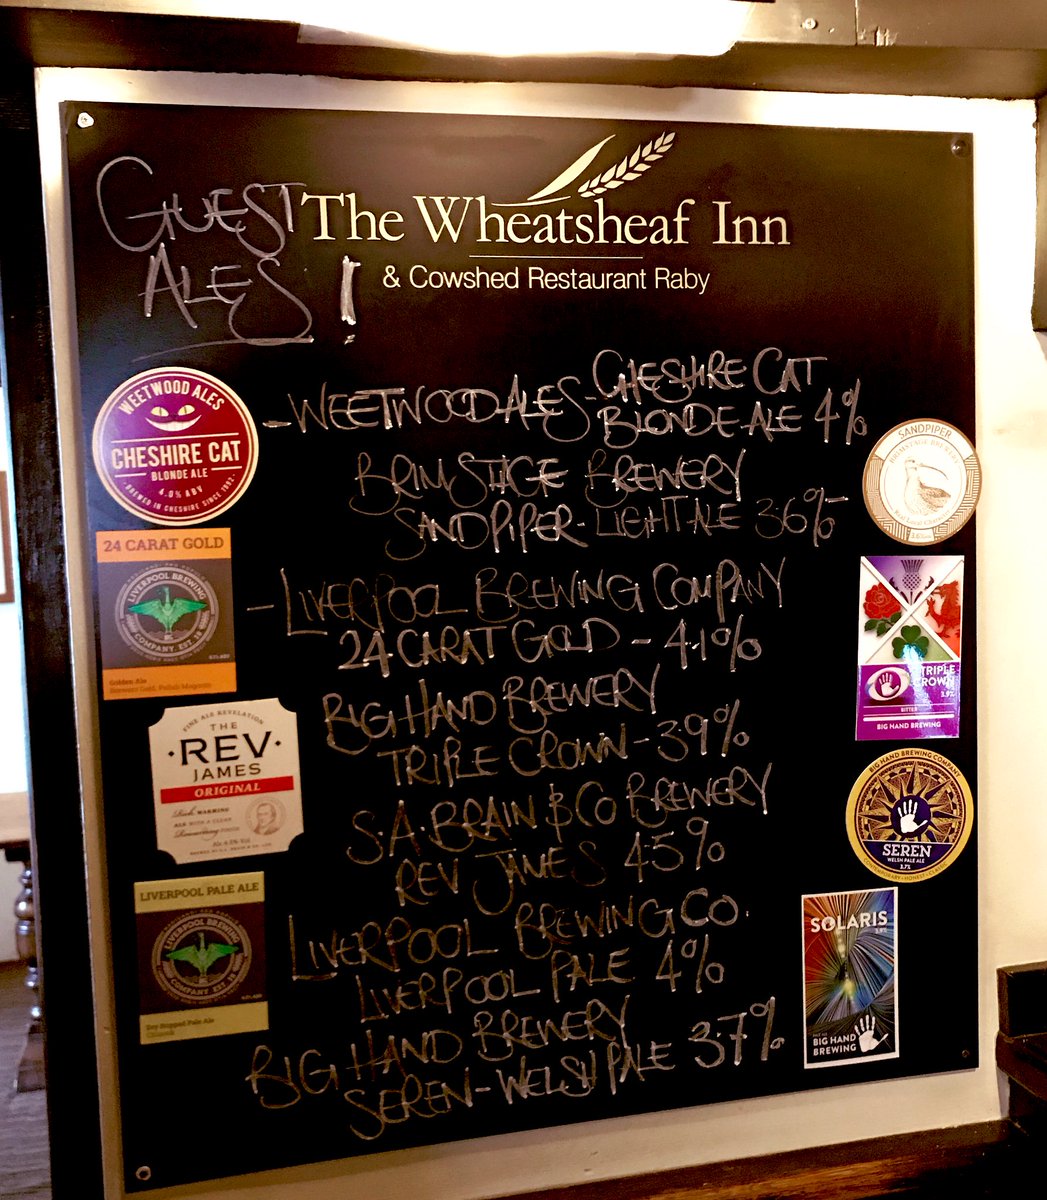 GUEST
ALES!
The Wheatsheaf Inn
& Cowshed Restaurant Raby
- WEETWOOD ALES - CHESHIRE CAT
BLONDE ALE 4%
BRIMSTAGE BREWERY
SANDPIPER - LIGHT ALE 3.6%
- LIVERPOOL BREWING COMPANY
24 CARAT GOLD - 4.1%
BIG HAND BREWERY
TRIPLE CROWN - 3.9%
S.A. BRAIN & CO BREWERY
REV JAMES 4.5%
LIVERPOOL BREWING CO.
LIVERPOOL PALE 4%
BIG HAND BREWERY
SEREN - WELSH PALE 3.7%
WEETWOOD ALES
CHESHIRE CAT
BLONDE ALE
4.0% ABV
BREWED IN CHESHIRE SINCE 1992
24 CARAT GOLD
LIVERPOOL BREWING
COMPANY. EST. 18
Golden Ale
FINE ALE REVELATION
THE
·REV·
JAMES
ORIGINAL
LIVERPOOL PALE ALE
LIVERPOOL BREWING
COMPANY. EST. 18
Dry Hopped Pale Ale
SANDPIPER
BRIMSTAGE BREWERY
TRIPLE
CROWN
3.9%
BITTER
BIG HAND BREWING
BIG HAND BREWING COMPANY
SEREN
WELSH PALE ALE
3.7%
CONTEMPORARY · HONEST · CLASSIC
SOLARIS
3.9%
BIG HAND
BREWING